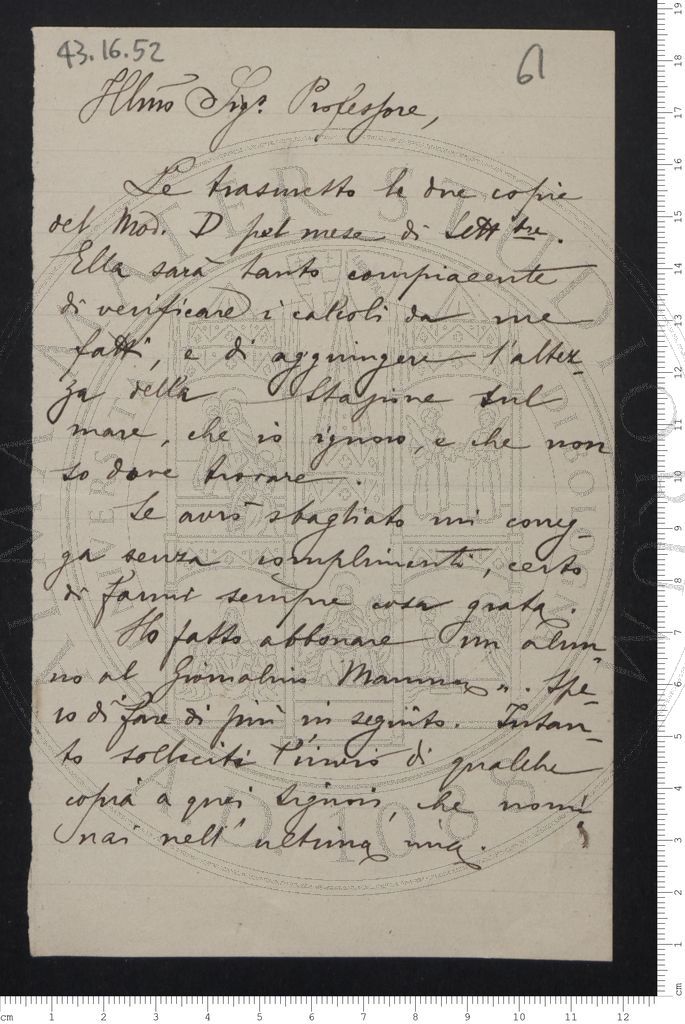 43.16.52
61
Illmo Sigr Professore,
Le trasmetto le due copie
del Mod. D pel mese di Settbre.
Ella sarà tanto compiacente
di verificare i calcoli da me
fatti, e di aggiungere l'altez-
za della Stazione sul
mare, che io ignoro, e che non
so dove trovare.
Se avrò sbagliato mi correg-
ga senza complimenti, certo
di farmi sempre cosa grata.
Ho fatto abbonare un alun-
no al Giornalino Mamma". Spe-
ro di fare di più in seguito. Intan-
to solleciti l'invio di qualche
copia a quei signori, che nomi
nai nell'ultima mia.
ALMA MATER STUDIORUM
A.D. 1088